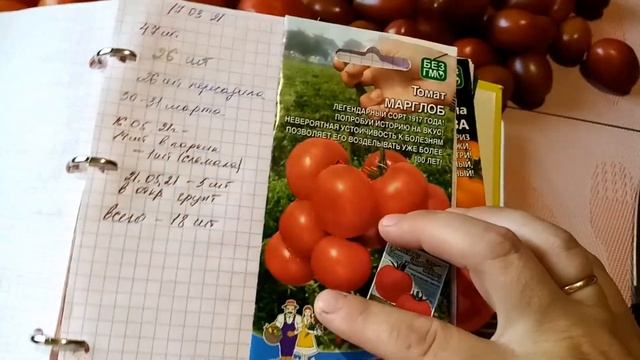 17 03 21
47 шт.
26 шт
26 шт пересадила
30-31 марта
12.05.21г -
14 шт в парник
- 1 шт (сломала)
21.05.21 - 5 шт
в откр грунт
всего - 18 шт
БЕЗ
ГМО
Томат
МАРГЛОБ
ЛЕГЕНДАРНЫЙ СОРТ 1917 ГОДА!
ПОПРОБУЙ ИСТОРИЮ НА ВКУС!
НЕВЕРОЯТНАЯ УСТОЙЧИВОСТЬ К БОЛЕЗНЯМ
ПОЗВОЛЯЕТ ЕГО ВОЗДЕЛЫВАТЬ УЖЕ БОЛЕЕ
100 ЛЕТ!